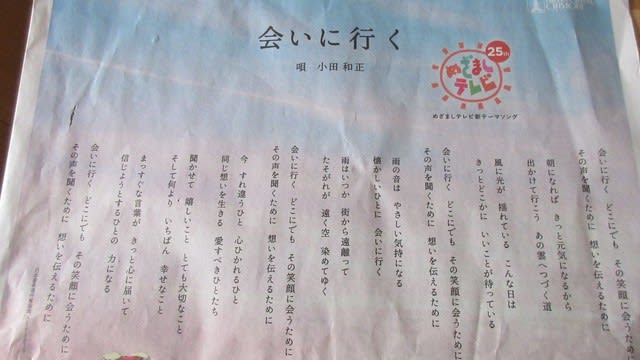 会いに行く
唄 小田和正
25th
めざまし
テレビ
めざましテレビ新テーマソング
会いに行く どこにでも その笑顔に会うために
その声を聞くために 想いを伝えるために
朝になれば きっと元気になるから
出かけて行こう あの雲へつづく道
風に光が 揺れている こんな日は
きっとどこかに いいことが待っている
会いに行く どこにでも その笑顔に会うために
その声を聞くために 想いを伝えるために
雨の音は やさしい気持になる
懐かしいひとに 会いに行く
雨はいつか 街から遠離って
たそがれが 遠く空 染めてゆく
会いに行く どこにでも その笑顔に会うために
その声を聞くために 想いを伝えるために
今 すれ違うひと 心ひかれるひと
同じ想いを生きる 愛すべきひとたち
聞かせて 嬉しいこと とても大切なこと
そして何より いちばん 幸せなこと
まっすぐな言葉が きっと心に届いて
信じようとするひとの 力になる
会いに行く どこにでも その笑顔に会うために
その声を聞くために 想いを伝えるために